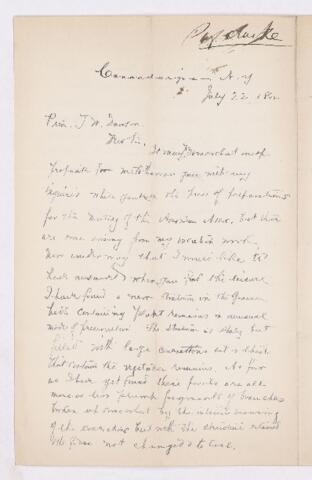 Prof. Clarke
Canandaigua N. Y
July 22 188
Prin. J. W. Dawson
Dear Sir,
It may somewhat
for me to harrass you with my
inquiries while you have the press of preparations
for the meeting of the American Assoc. But there
are some arising from my vacation work
now under way that I must like to
have answered when you find the leisure.
I have found a new station in the Genesee
beds containing plant remains in unusual
mode of preservation. The stratum is shaly but
filled with large concretions and in which
that contain the vegetable remains. As far
as I have yet found these fossils are all
more or less fragments of branches
broken up somewhat by the
of the concretion but with the structure retained
and not changed to coal.